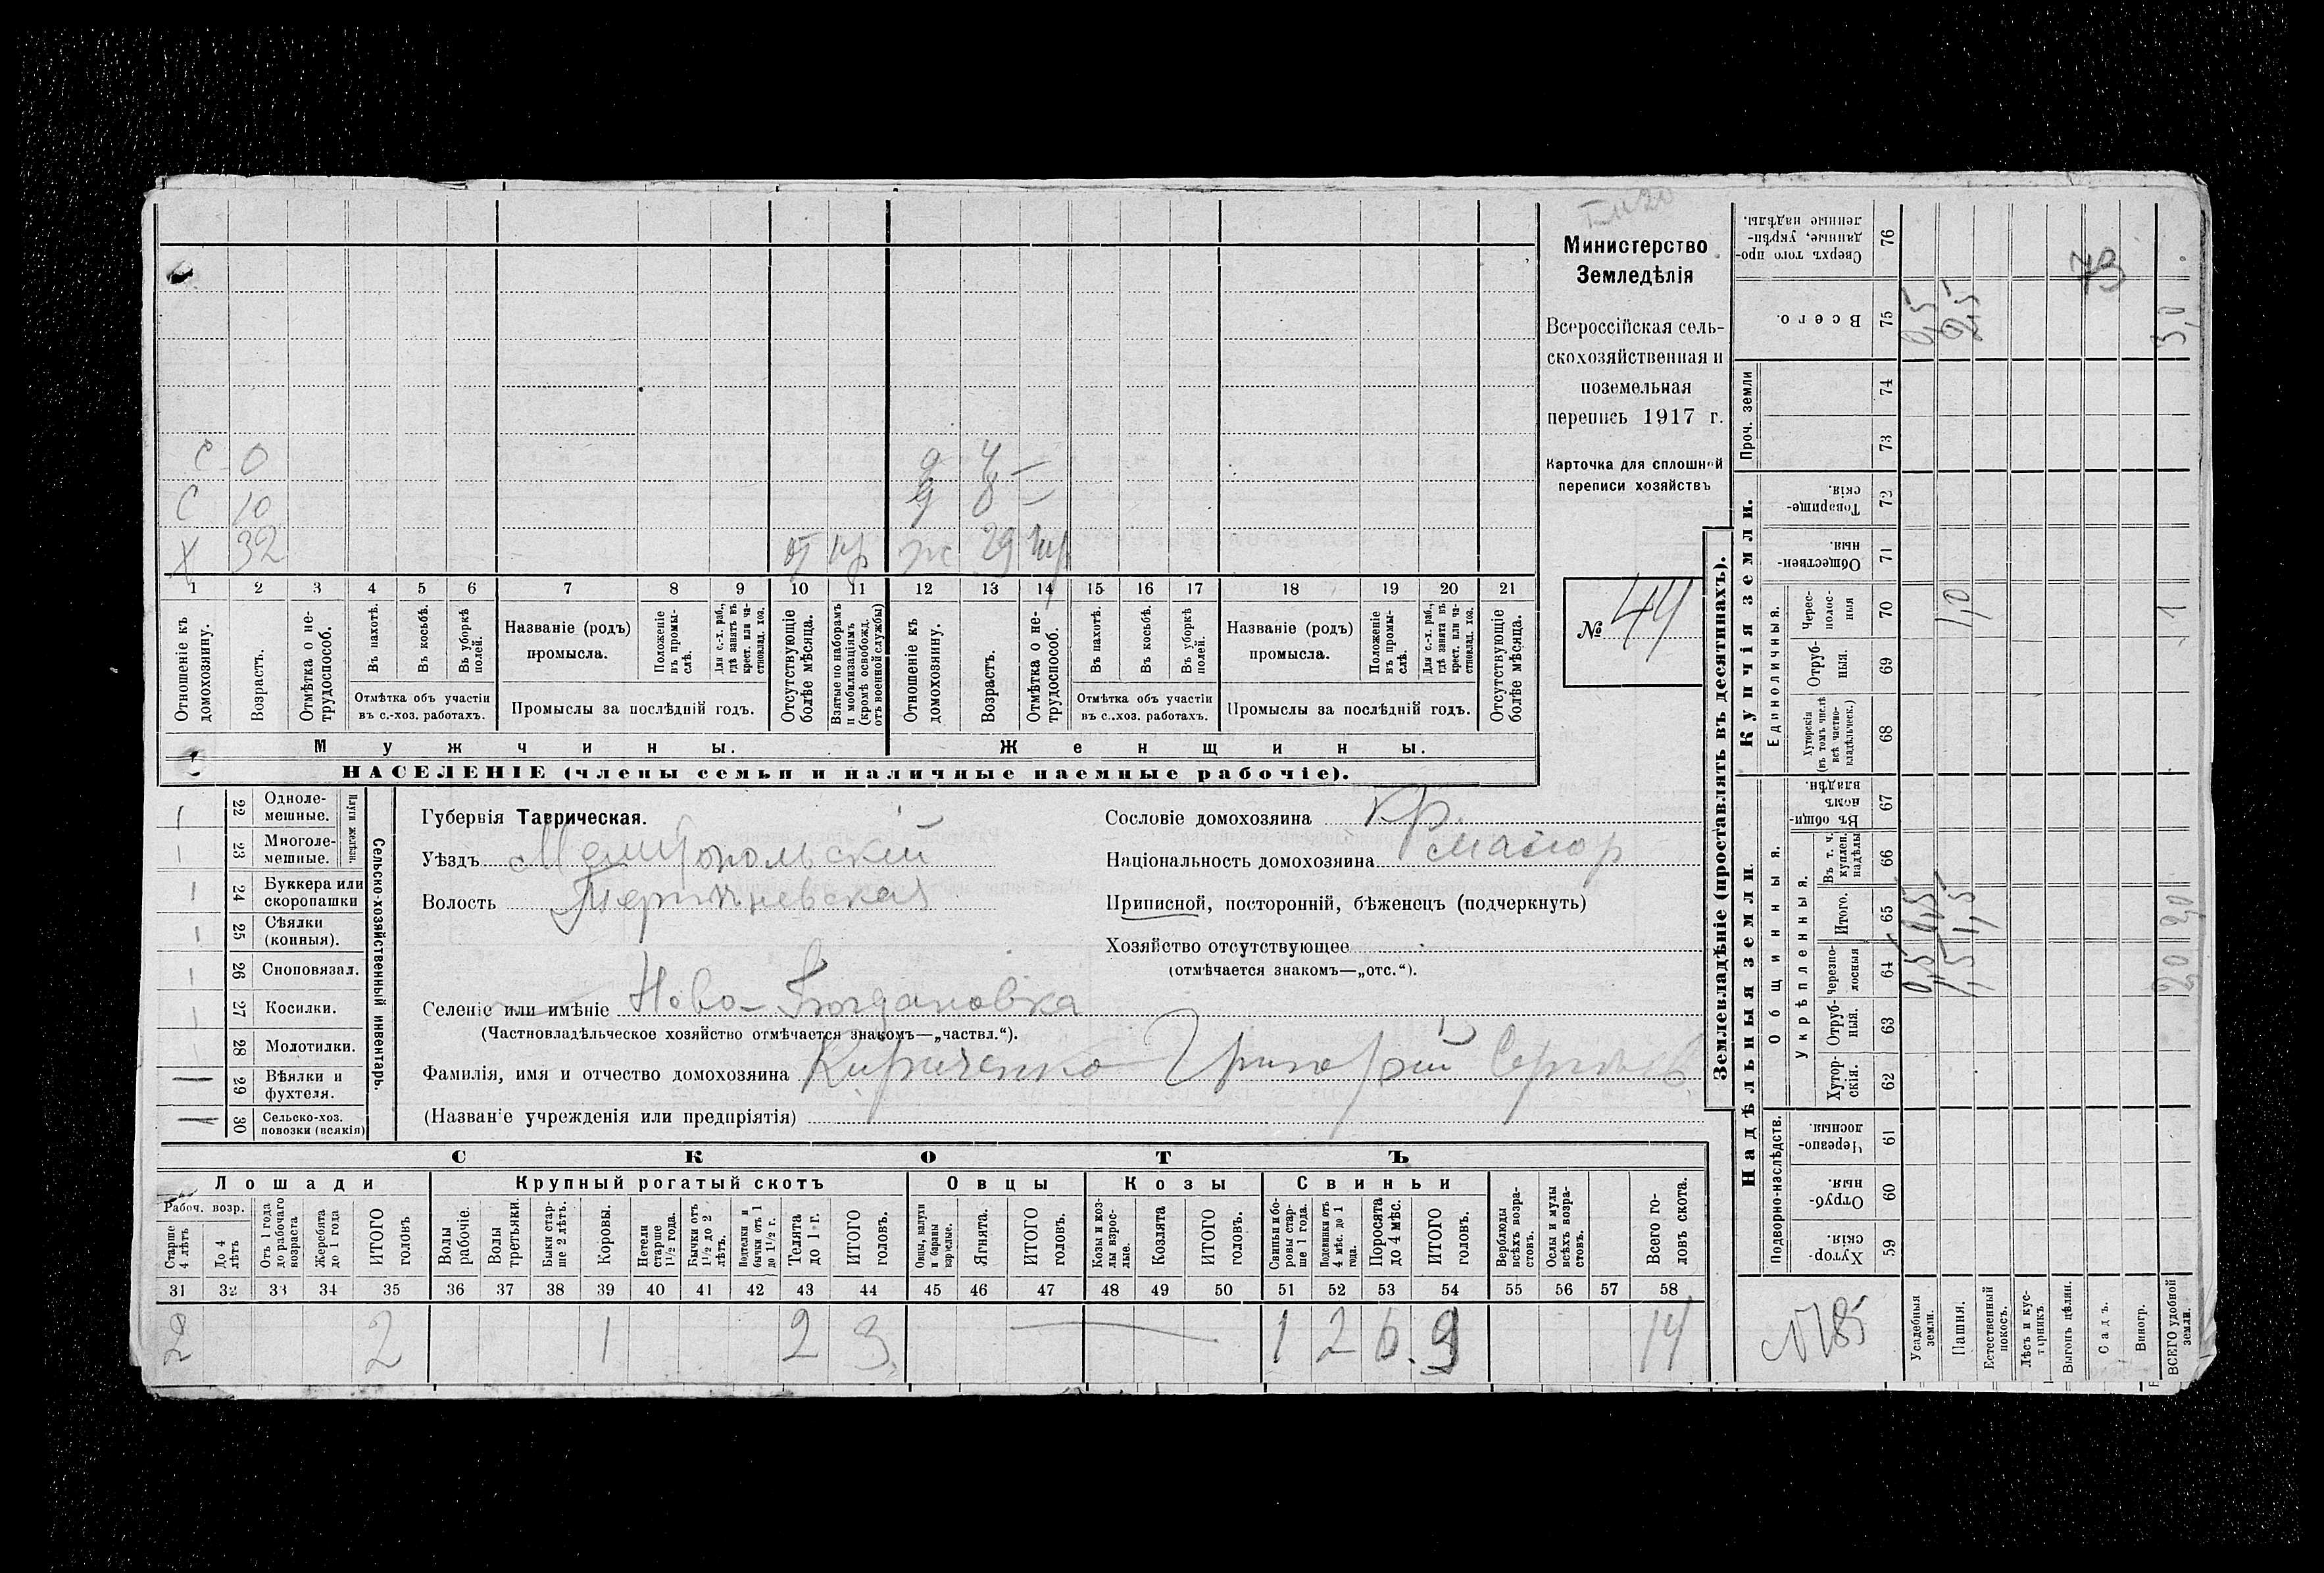 Министерство
Земледѣлія
Всероссійская сель-
скохозяйственная и
поземельная
перепись 1917 г.
Карточка для сплошной
переписи хозяйствъ
№ 44
С 0 д 4 —
С 10 д 8 —
Х 32 от пр ж 29
1 2 3 4 5 6 7 8 9 10 11 12 13 14 15 16 17 18 19 20 21
Отношеніе къ домохозяину.
Возрастъ.
Отмѣтка о не-трудоспособ.
Въ пахотѣ.
Въ косьбѣ.
Въ уборкѣ полей.
Отмѣтка объ участіи
въ с.-хоз. работахъ.
Названіе (родъ)
промысла.
Положеніе въ промы-слѣ.
Для с.-х. раб., гдѣ занятъ въ крест. или ча-стновлад. хоз.
Промыслы за послѣдній годъ.
Отсутствующіе болѣе мѣсяца.
Взятые по наборамъ и мобилизаціямъ (кромѣ освобожд. отъ военной службы)
Отношеніе къ домохозяину.
Возрастъ.
Отмѣтка о не-трудоспособ.
Въ пахотѣ.
Въ косьбѣ.
Въ уборкѣ полей.
Отмѣтка объ участіи
въ с.-хоз. работахъ.
Названіе (родъ)
промысла.
Положеніе въ промы-слѣ.
Для с.-х. раб., гдѣ занята въ крест. или ча-стновлад. хоз.
Промыслы за послѣдній годъ.
Отсутствующіе болѣе мѣсяца.
Мужчины. Женщины.
НАСЕЛЕНІЕ (члены семьи и наличные наемные рабочіе).
Сельско-хозяйственный инвентарь.
Плуги желѣзн.
22 Одноле-мешные.
23 Многоле-мешные.
24 Буккера или скоропашки
25 Сѣялки (конныя).
26 Сноповязал.
27 Косилки.
28 Молотилки.
29 Вѣялки и фухтеля.
30 Сельско-хоз. повозки (всякія)
Губернія Таврическая.
Уѣздъ Мелитопольскій
Волость Терпѣньевская
Селеніе или имѣніе Ново-Богдановка
(Частновладѣльческое хозяйство отмѣчается знакомъ—„частвл.“).
Фамилія, имя и отчество домохозяина Кириченко Григорій
(Названіе учрежденія или предпріятія)
Сословіе домохозяина кр.
Національность домохозяина малор
Приписной, посторонній, бѣженецъ (подчеркнуть)
Хозяйство отсутствующее
(отмѣчается знакомъ—„отс.“).
СКОТЪ
Лошади Крупный рогатый скотъ Овцы Козы Свиньи
Рабоч. возр.
Старше 4 лѣтъ
До 4 лѣтъ
Отъ 1 года до рабочаго возраста
Жеребята до 1 года
ИТОГО головъ
Волы рабочіе.
Волы третьяки.
Быки стар-ше 2 лѣтъ.
Коровы.
Нетели старше 1½ года.
Бычки отъ 1½ до 2 лѣтъ.
Подтелки и бычки отъ 1 до 1½ г.
Телята до 1 г.
ИТОГО головъ.
Овцы, валухи и бараны взрослые.
Ягнята.
ИТОГО головъ.
Козы и коз-лы взрос-лые.
Козлята
ИТОГО головъ.
Свиньи и бо-ровы стар-ше 1 года.
Подсвинки отъ 4 мѣс. до 1 года.
Поросята до 4 мѣс.
ИТОГО головъ.
Верблюды всѣхъ возра-стовъ.
Ослы и мулы всѣхъ возра-стовъ.
Всего го-ловъ скота.
31 32 33 34 35 36 37 38 39 40 41 42 43 44 45 46 47 48 49 50 51 52 53 54 55 56 57 58
2 2 1 2 3 1 2 6 9 14
Землевладѣніе (проставлять въ десятинахъ).
Надѣльныя земли. Купчія земли.
Подворно-наслѣдств.
Общинныя.
Укрѣпленныя.
Единоличныя.
Проч. земли
59 Хутор-скія.
60 Отруб-ныя.
61 Черезпо-лосныя
62 Хутор-скія.
63 Отруб-ныя.
64 Черезпо-лосныя
65 Итого.
66 Въ т. ч. куплен. надѣлы
67 Въ общи-номъ владѣн.
68 Хуторскія (въ томъ числѣ всѣ частно-владѣльческ.)
69 Отруб-ныя.
70 Черес-полос-ныя
71 Обществен-ныя.
72 Товарище-скія.
73
74
75 Всего.
76 Сверхъ того про-данные, укрѣп-ленные надѣлы.
№185
Усадебныя земли. 0,5 0,5 0,5
Пашня. 1,5 1,5 1,0 2,5
Естественный покосъ.
Лѣсъ и кус-тарникъ
Выгонъ цѣлин.
Садъ. 73
Виногр.
ВСЕГО удобной земли. 2,0 2,0 1 3,0